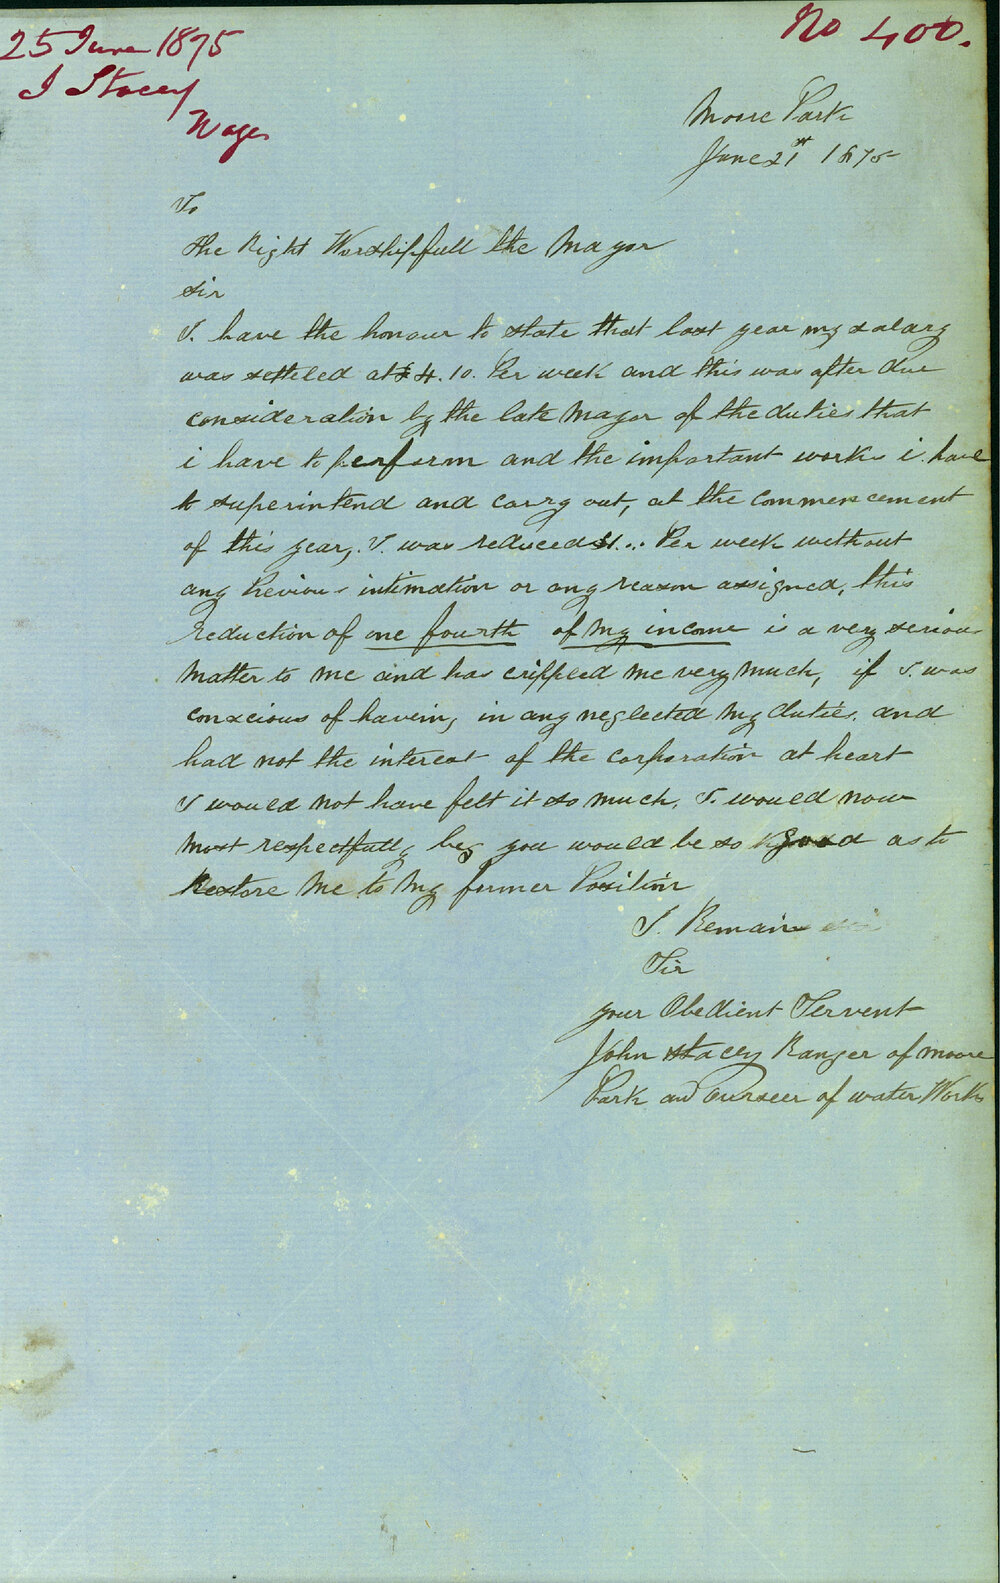 25 June 1875
No 400.
J Stacey
Wages
Moore Park
June 21st 1875
To
The Right Worshipfull the Mayor
Sir
I. have the honour to state that last year my salary
was setteled at £4.10. Per week and this was after due
consideration by the late Mayor of the duties that
i have to perform and the important works i. have
to superintend and carry out, at the commencement
of this year, I. was reduced £1... Per week without
any Previous intimation or any reason assigned, this
reduction of one fourth of my income is a very serious
matter to me and has crippled me very much, if I. was
conscious of haveing in any neglected my duties. and
had not the interest of the corporation at heart
I would not have felt it so much. I. would now
most respectfully beg you would be so good as to
Restore me to my former Position
I. Remain
Sir
your Obedient Servent
John Stacey Ranger of Moore
Park and Overseer of water Works